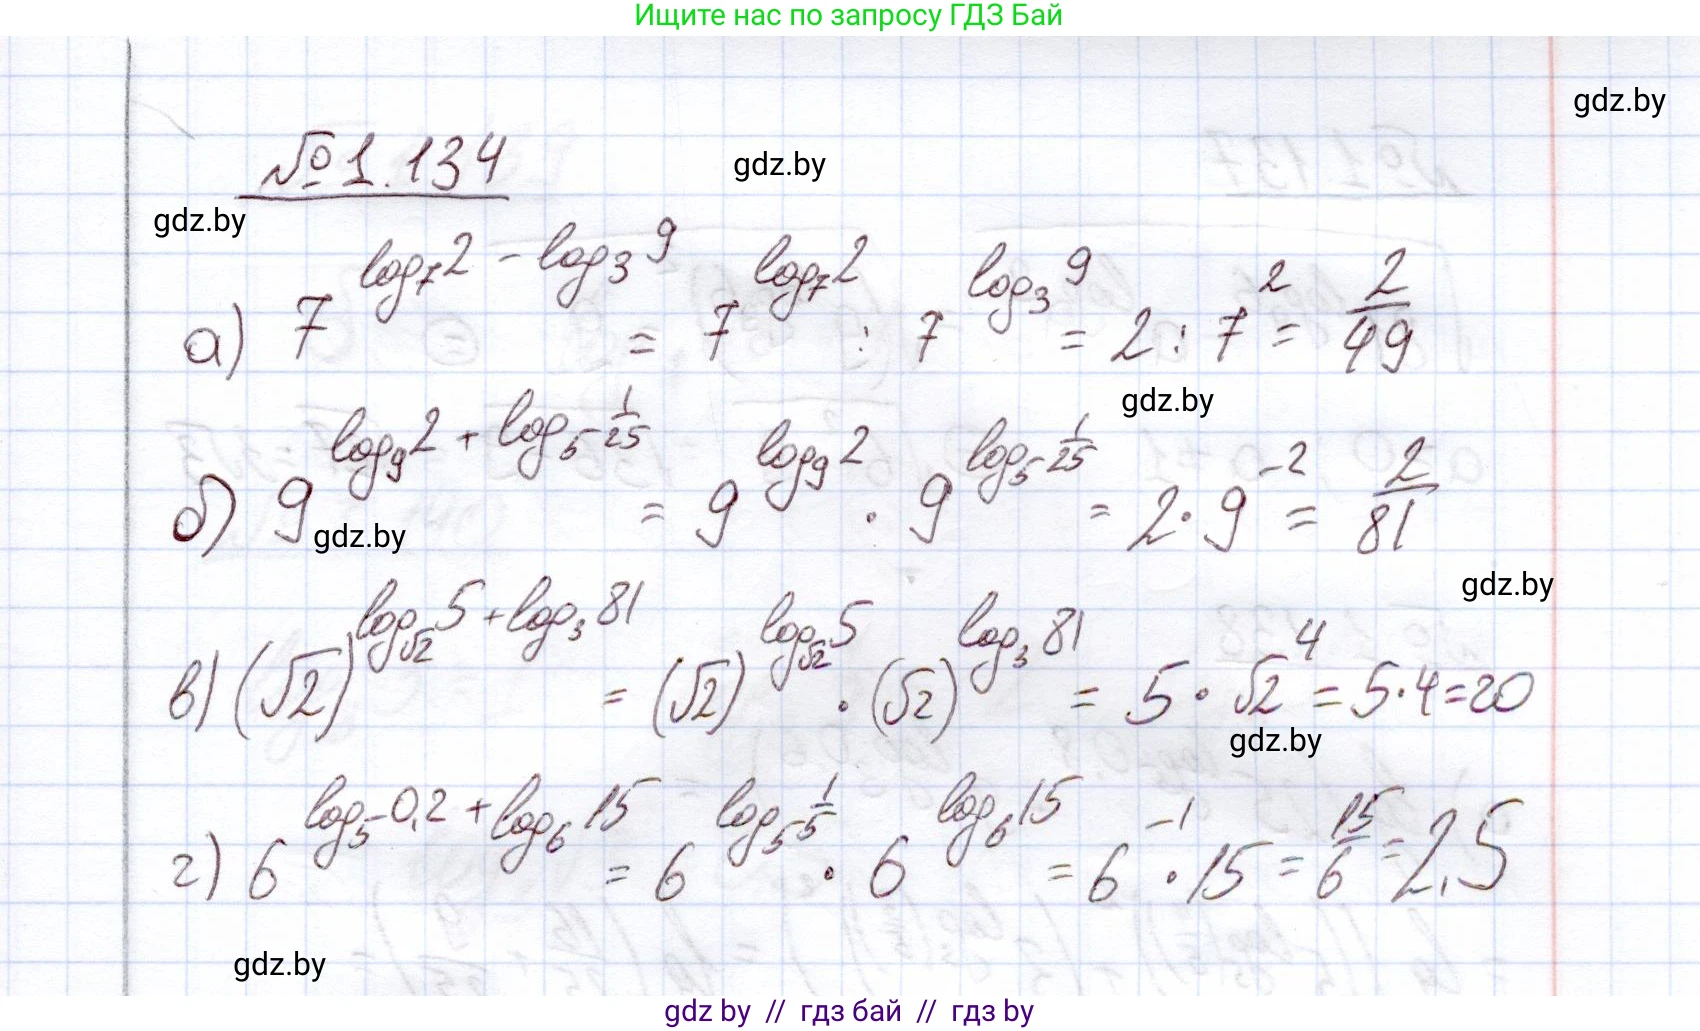 Ищите нас по запросу ГДЗ Бай
gdz.by
№1.134
gdz.by
gdz.by
а) 7^(log₇2 - log₃9) = 7^(log₇2) : 7^(log₃9) = 2 : 7² = 2/49
gdz.by
б) 9^(log₉2 + log₅ 1/25) = 9^(log₉2) · 9^(log₅ 1/25) = 2 · 9⁻² = 2/81
gdz.by
gdz.by
в) (√2)^(log_√2 5 + log₃81) = (√2)^(log_√2 5) · (√2)^(log₃81) = 5 · √2⁴ = 5·4=20
gdz.by
г) 6^(log₅0,2 + log₆15) = 6^(log₅ 1/5) · 6^(log₆15) = 6⁻¹ · 15 = 15/6 = 2,5
gdz.by
gdz by // гдз бай // гдз by